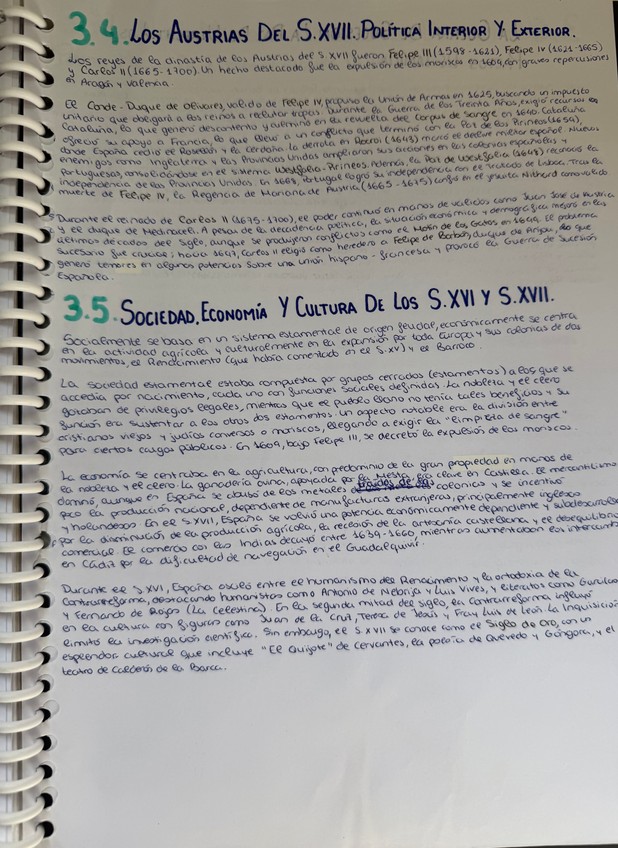 3.4. Los Austrias Del S.XVII. Política Interior Y Exterior.
Los reyes de la dinastía de los Austrias del S XVII fueron Felipe III (1598-1621), Felipe IV (1621-1665)
y Carlos II (1665-1700). Un hecho destacado fue la expulsión de los moriscos en 1609, con graves repercusiones
en Aragón y Valencia.
El Conde-Duque de Olivares, valido de Felipe IV, propuso la Unión de Armas en 1625, buscando un impuesto
unitario que obligara a los reinos a reclutar tropas. Durante la Guerra de los Treinta Años, exigió recursos a
Cataluña, lo que generó descontento y culminó en la revuelta del Corpus de Sangre en 1640. Cataluña
ofreció su apoyo a Francia, lo que llevó a un conflicto que terminó con la Paz de los Pirineos (1659),
donde España cedió el Rosellón y la Cerdaña. La derrota en Rocroi (1643) marcó el declive militar español. Nuevos
enemigos como Inglaterra y las Provincias Unidas ampliaron sus acciones en las colonias españolas y
portuguesas, consolidándose en el sistema Westfalia-Pirineos. Además, la Paz de Westfalia (1648) reconoció la
independencia de las Provincias Unidas. En 1668, Portugal logró su independencia con el tratado de Lisboa. Tras la
muerte de Felipe IV, la Regencia de Mariana de Austria (1665-1675) confió en el jesuita Nithard como valido
Durante el reinado de Carlos II (1675-1700), el poder continuó en manos de validos como Juan José de Austria
y el duque de Medinaceli. A pesar de la decadencia política, la situación económica y demográfica mejoró en las
últimas décadas del siglo, aunque se produjeron conflictos como el Motín de los Gatos en 1699. El problema
sucesorio fue crucial; hacia 1697, Carlos II eligió como heredero a Felipe de Borbón, duque de Anjou, lo que
generó temores en algunas potencias sobre una unión hispano-francesa y provocó la Guerra de Sucesión
Española.
3.5. Sociedad, Economía Y Cultura De Los S.XVI Y S.XVII.
Socialmente se basa en un sistema estamental de origen feudal, económicamente se centra
en la actividad agrícola y culturalmente en la expansión por toda Europa y sus colonias de dos
movimientos, el Renacimiento (que había comenzado en el S.XV) y el Barroco.
La sociedad estamental estaba compuesta por grupos cerrados (estamentos) a los que se
accedía por nacimiento, cada uno con funciones sociales definidas. La nobleza y el clero
gozaban de privilegios legales, mientras que el pueblo llano no tenía tales beneficios y su
función era sustentar a los otros dos estamentos. Un aspecto notable era la división entre
cristianos viejos y judíos conversos o moriscos, llegando a exigir la "limpieza de sangre"
para ciertos cargos públicos. En 1609, bajo Felipe III, se decretó la expulsión de los moriscos.
La economía se centraba en la agricultura, con predominio de la gran propiedad en manos de
la nobleza y el clero. La ganadería ovina, apoyada por la Mesta, era clave en Castilla. El mercantilismo
dominó, aunque en España se abusó de los metales de las colonias y se incentivó
poco la producción nacional, dependiente de manufacturas extranjeras, principalmente inglesas
y holandesas. En el S.XVII, España se volvió una potencia económicamente dependiente y subdesarrollada
por la disminución de la producción agrícola, la recesión de la artesanía castellana y el desequilibrio
comercial. El comercio con las Indias decayó entre 1639-1660, mientras aumentaban los intercambios
en Cádiz por la dificultad de navegación en el Guadalquivir.
Durante el S XVI, España osciló entre el humanismo del Renacimiento y la ortodoxia de la
Contrarreforma, destacando humanistas como Antonio de Nebrija y Luis Vives, y literatos como Garcilaso
y Fernando de Rojas (La Celestina). En la segunda mitad del siglo, la Contrarreforma influyó
en la cultura con figuras como Juan de la Cruz, Teresa de Jesús y Fray Luis de León. La Inquisición
limitó la investigación científica. Sin embargo, el S XVII se conoce como el Siglo de Oro, con un
esplendor cultural que incluye "El Quijote" de Cervantes, la poesía de Quevedo y Góngora, y el
teatro de Calderón de la Barca.